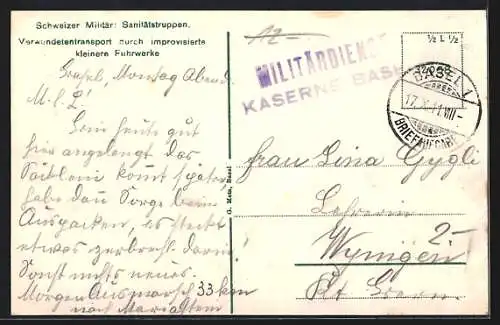 Schweizer Militär: Sanitätstruppen.
Verwundetentransport durch improvisierte
kleinere Fuhrwerke
12 —
½ L ½
MILITÄRDIENST
KASERNE BASEL
BASEL 1
BRIEFAUFGABE
Basel, Montag Abend.
M. L.!
Bin heute gut
hier angelangt das
komt später,
habe dan Sorge beim
Auspacken, es steckt
etwas zerbrechl. darin.
Sonst nichts neues.
Morgen Ausmarsch 33 km
nach Mariastein
G. Metz, Basel
Frau Lina Gygli
Lehrerin
2-
Wynigen
Kt. Bern.